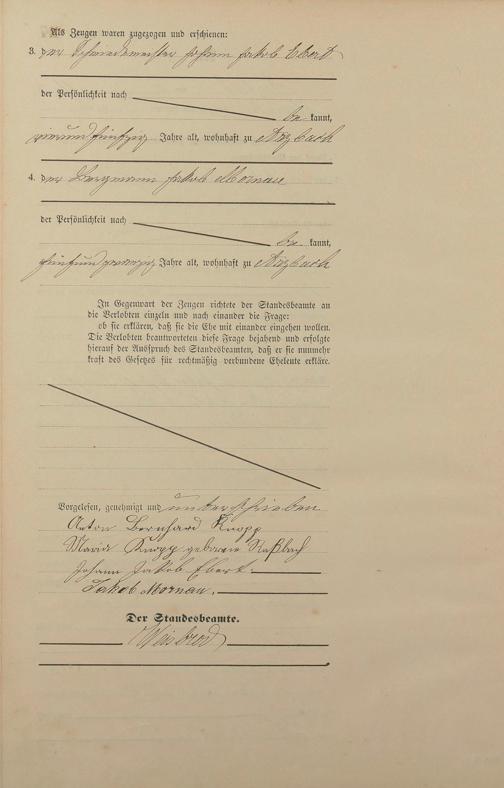 Als Zeugen waren zugezogen und erschienen:
3. der Schmiedemeister Johann Jakob Ebert
der Persönlichkeit nach
be kannt,
vierundfünfzig Jahre alt, wohnhaft zu Arzbach
4. der Bergmann Jakob Mornau
der Persönlichkeit nach
be kannt,
fünfundzwanzig Jahre alt, wohnhaft zu Arzbach
In Gegenwart der Zeugen richtete der Standesbeamte an
die Verlobten einzeln und nach einander die Frage:
ob sie erklären, daß sie die Ehe mit einander eingehen wollen.
Die Verlobten beantworteten diese Frage bejahend und erfolgte
hierauf der Ausspruch des Standesbeamten, daß er sie nunmehr
kraft des Gesetzes für rechtmäßig verbundene Eheleute erkläre.
Vorgelesen, genehmigt und unterschrieben
Anton Bernhard Knopp
Maria Knopp geborene
Johann Jakob Ebert.
Jakob Mornau.
Der Standesbeamte.
Weisbrod